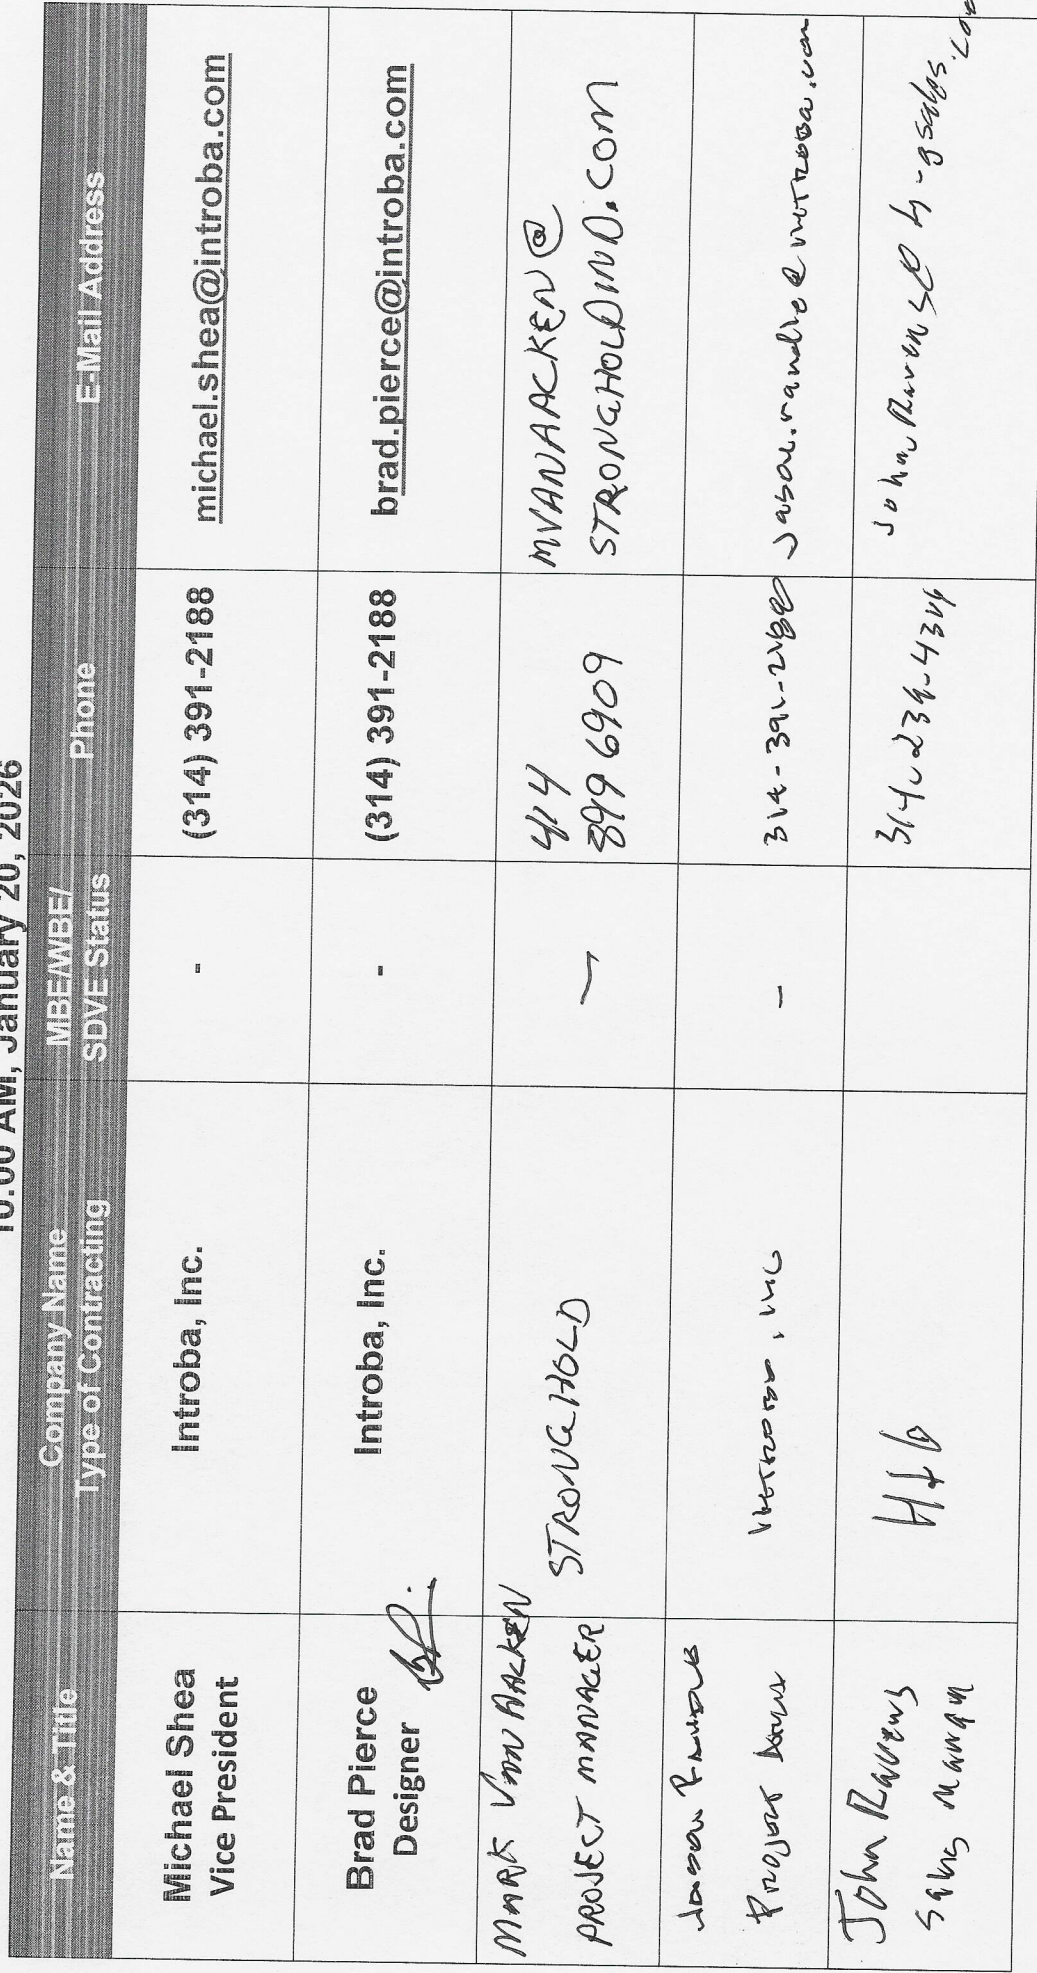 10:00 AM, January 20, 2026
Name & Title
Company Name
Type of Contracting
MBE/WBE/
SDVE Status
Phone
E-Mail Address
Michael Shea
Vice President
Introba, Inc.
-
(314) 391-2188
michael.shea@introba.com
Brad Pierce
Designer
BP.
Introba, Inc.
-
(314) 391-2188
brad.pierce@introba.com
MARK VAN AACKEN
PROJECT MANAGER
STRONGHOLD
—
414
899 6909
MVANAACKEN@
STRONGHOLDIND.COM
Jason
Project
Introba, Inc
-
314-391-2188
John Ravens
Sales Manager
314